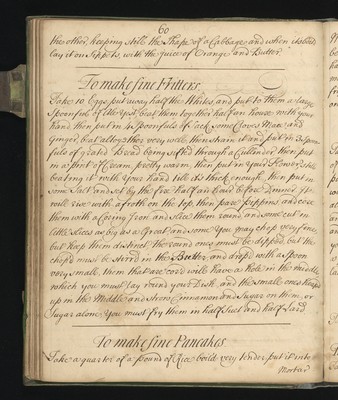 60
the other, keeping still the Shape of a Cabbage and when its boild
lay it on Sippets, with the juice of Orange and Butter.
To make fine Fritters.
Take 10 Eggs put away half the Whites, and put to them a large
Spoonfull of Ale Yest, beat them together half an hour with your
hand then put in Spoonfuls of Sack some Cloves Mace and
Ginger, beat altogether very well, then strain it and put in Spoon-
fuls of grated Bread being sifted through a Cullender, then put
to a Pint of Cream pretty warm, then put in your Flower, still
beating it with your hand till it's thick enough, then put in
some Salt and set by the fire half an hour before Dinner. It
will rise with a froth on the top, then pare Pippins and core
them with a Coring Iron and Slice them round and some cut in
little slices as big as a Groat and some you may chop very fine,
but keep them distinct, the round ones must be dipped, but the
chop'd must be stirred in the Butter, and dropt with a Spoon
very small, them that are cor'd will have a Hole in the middle
which you must lay round your Dish, and the small ones heap
up in the Middle and strew Cinnamon and Sugar on them, or
Sugar alone. You must fry them in half Suet and half Lard
To make fine Pancakes.
Take a quarter of a pound of Rice boild very tender put it into
Mortar